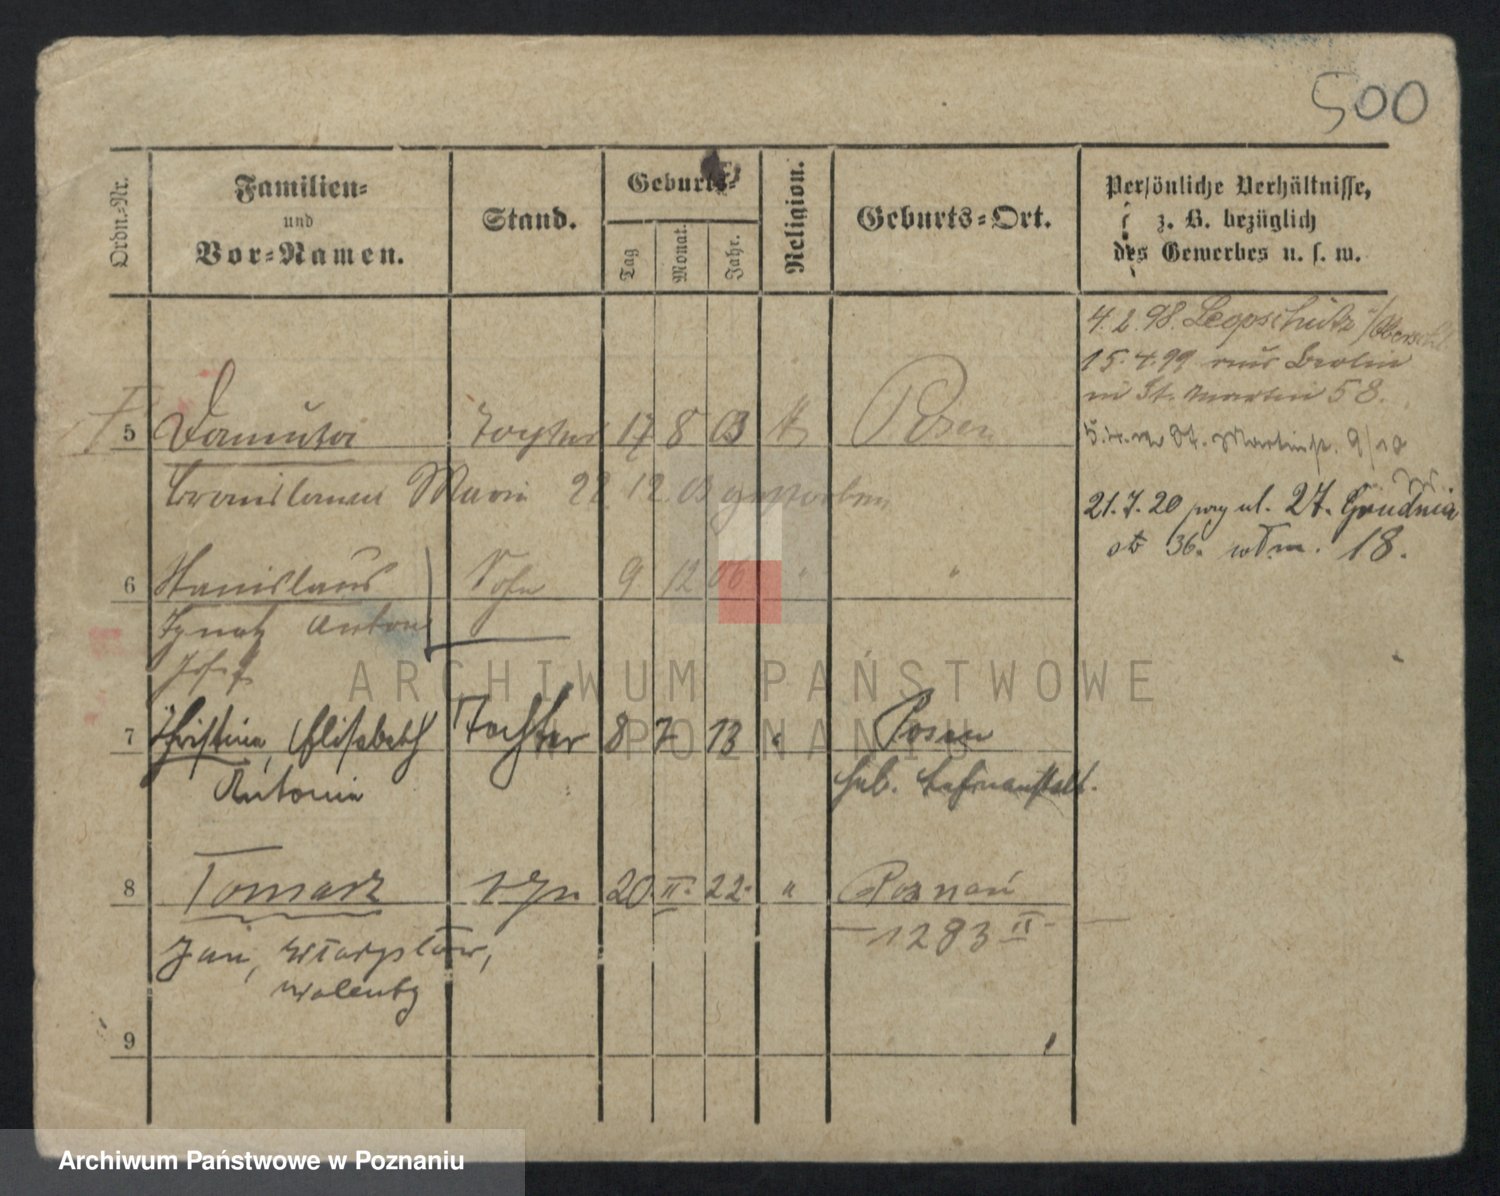 500
Ordn.-Nr.
Familien-
und
Vor-Namen.
Stand.
Geburts-
Tag
Monat.
Jahr.
Religion.
Geburts-Ort.
Persönliche Verhältnisse,
z. B. bezüglich
des Gewerbes u. s. w.
4. 2. 98. Leopschütz /Oberschl.
15. 4. 99 aus Berlin
in St. Martin 58.
5 Danuta Tochter 17 8 03 K Posen
St. Martinstr. 9/10
Bronislawa Maria 22 12 03 gestorben
21. 7. 20 przy ul. 27. Grudnia
18.
6 Stanislaus Sohn 9 12 06 " "
Ignatz Anton
Josef
7 Christine, Elisabeth Tochter 8 7 13 " Posen
Antonie
Heb. Lehranstalt.
8 Tomasz syn 20 II. 22. " Poznań
1283 II
Jan, Władysław,
Walenty
9
ARCHIWUM PAŃSTWOWE
W POZNANIU
Archiwum Państwowe w Poznaniu